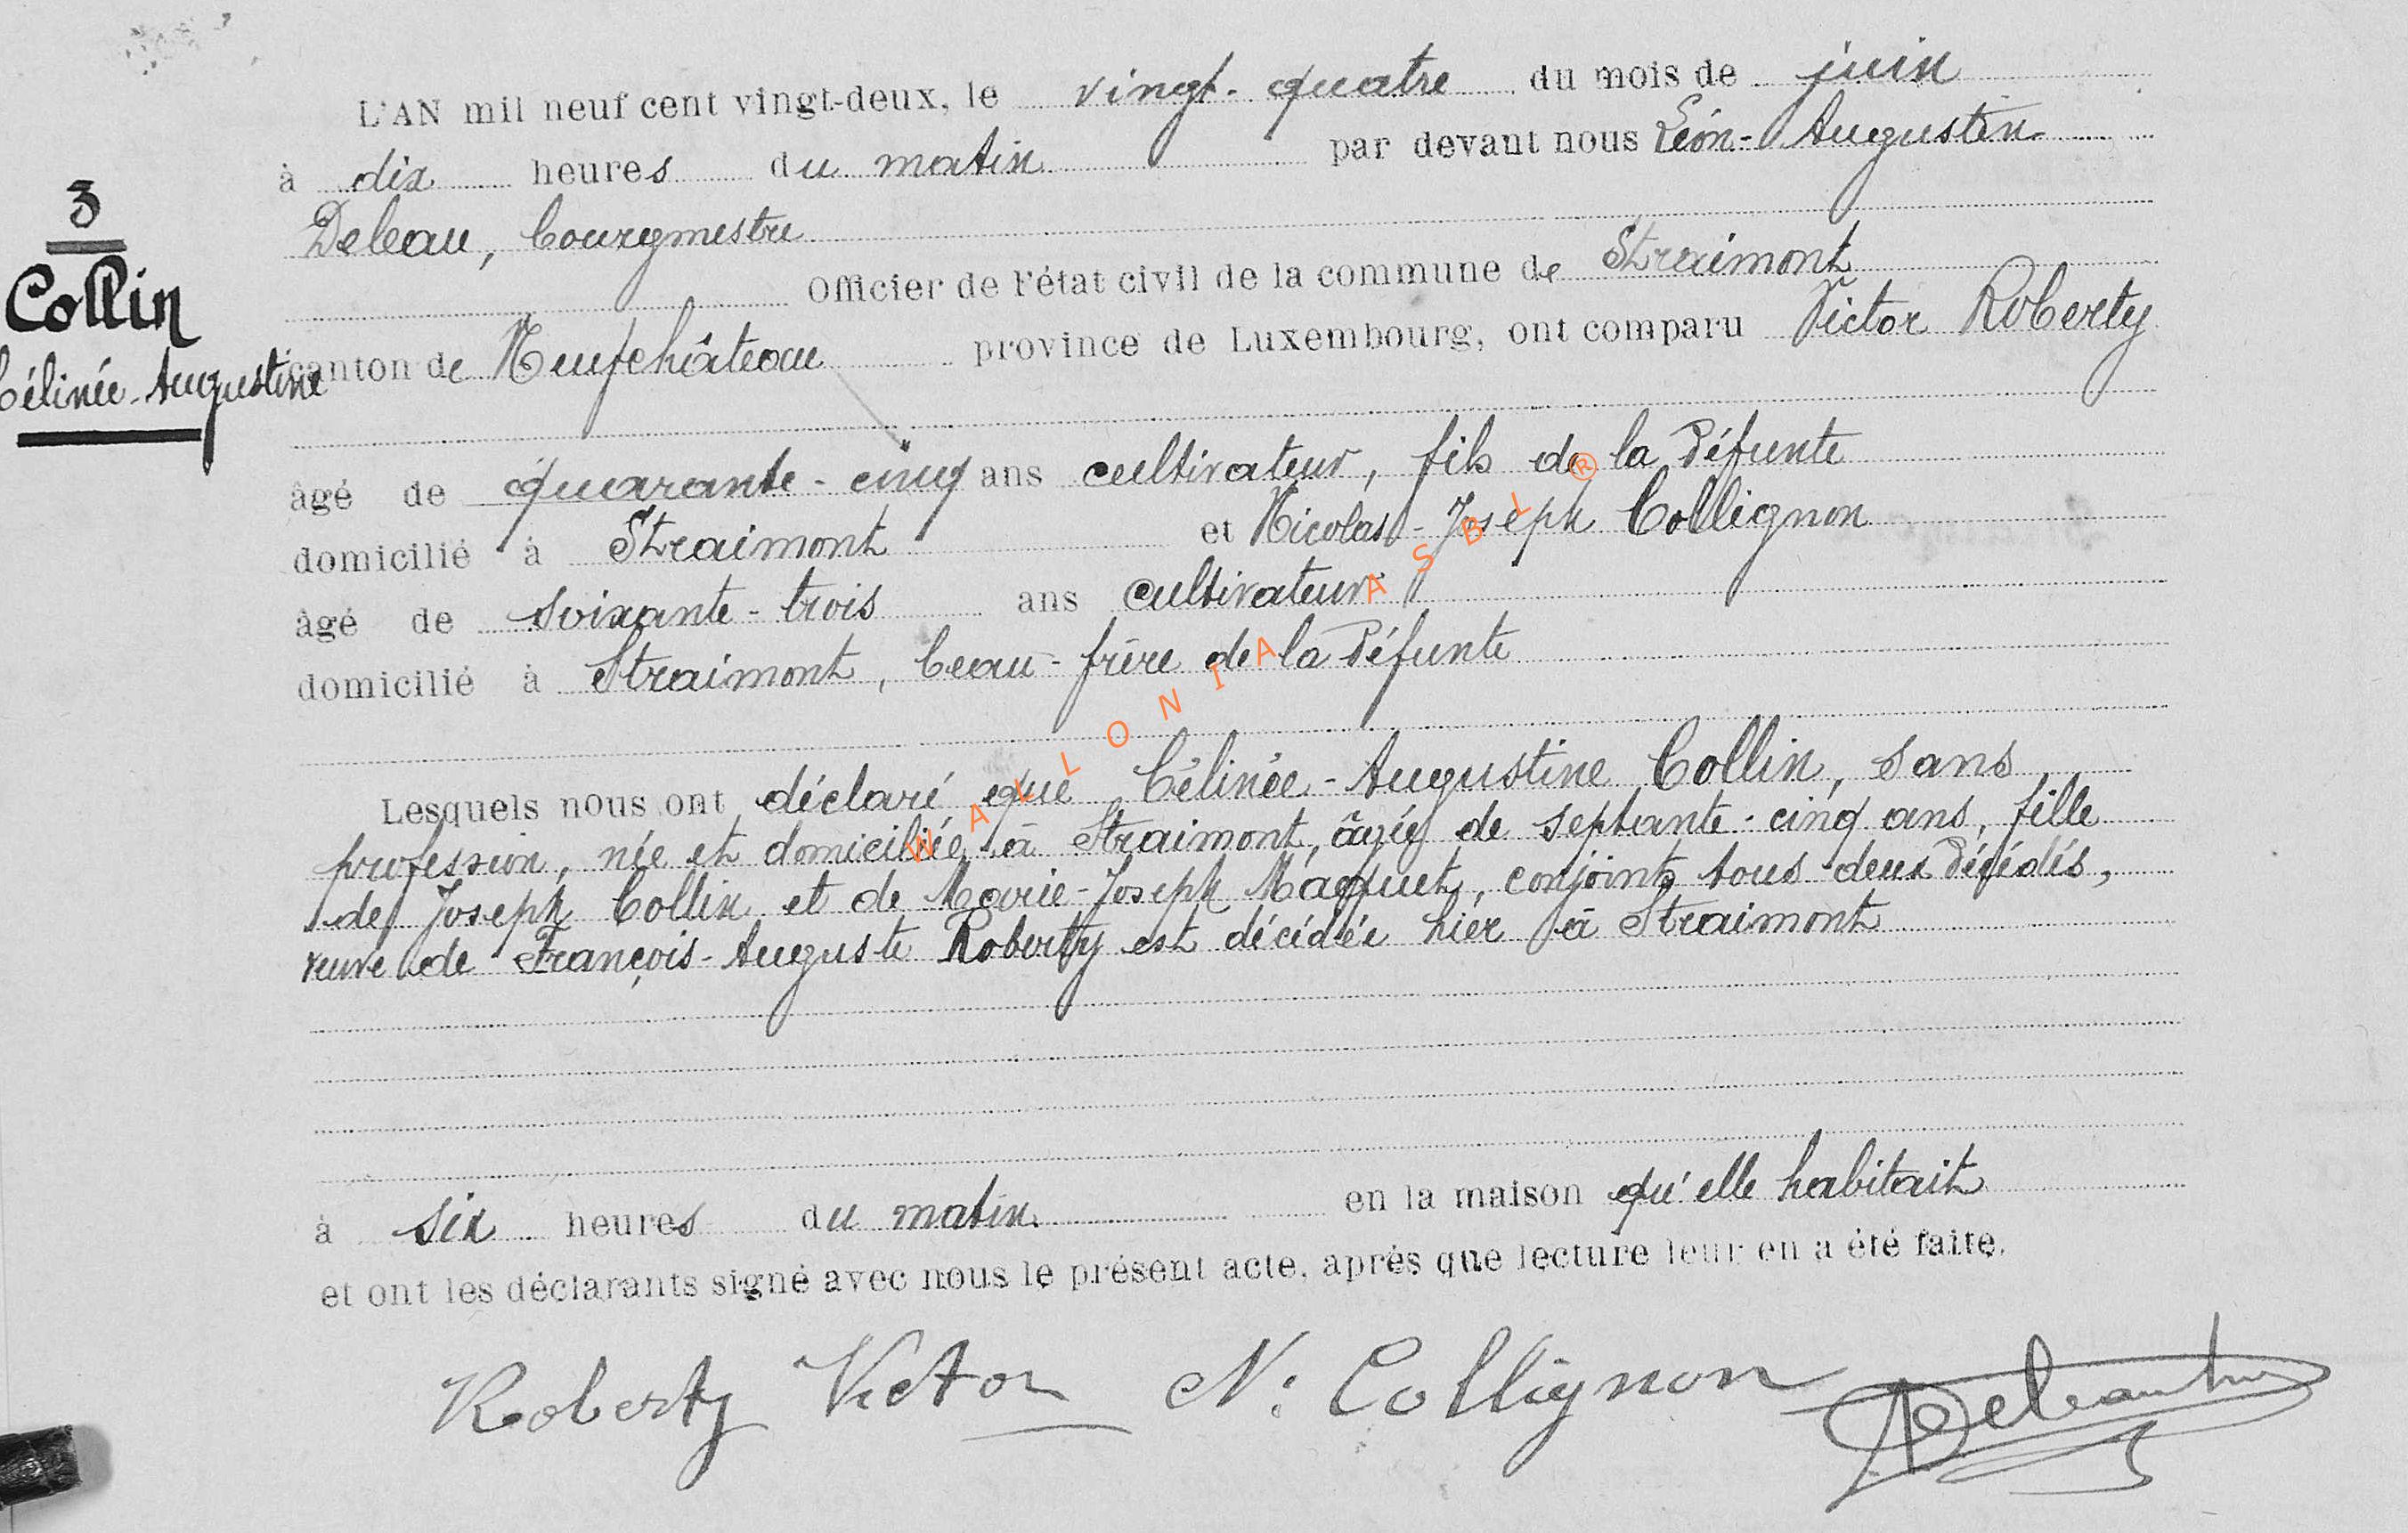 3
Collin
Célinée-Augustine
L'AN mil neuf cent vingt-deux, le vingt-quatre du mois de juin
à dix heures du matin par devant nous Léon-Augustin
Deleau, bourgmestre
Officier de l'état civil de la commune de Straimont
canton de Neufchâteau province de Luxembourg, ont comparu Victor Roberty
âgé de quarante-cinq ans cultivateur, fils de la défunte
domicilié à Straimont et Nicolas-Joseph Collignon
âgé de soixante-trois ans cultivateur
domicilié à Straimont, beau-frère de la défunte
Lesquels nous ont déclaré que Célinée-Augustine Collin, sans
profession, née et domiciliée à Straimont, âgée de septante-cinq ans, fille
de Joseph Collin et de Marie-Joseph Maquet, conjoints tous deux décédés,
veuve de François-Auguste Roberty est décédée hier à Straimont
à six heures du matin en la maison qu'elle habitait
et ont les déclarants signé avec nous le présent acte, après que lecture leur en a été faite.
Roberty Victor N: Collignon
WALLONIA ASBL ®